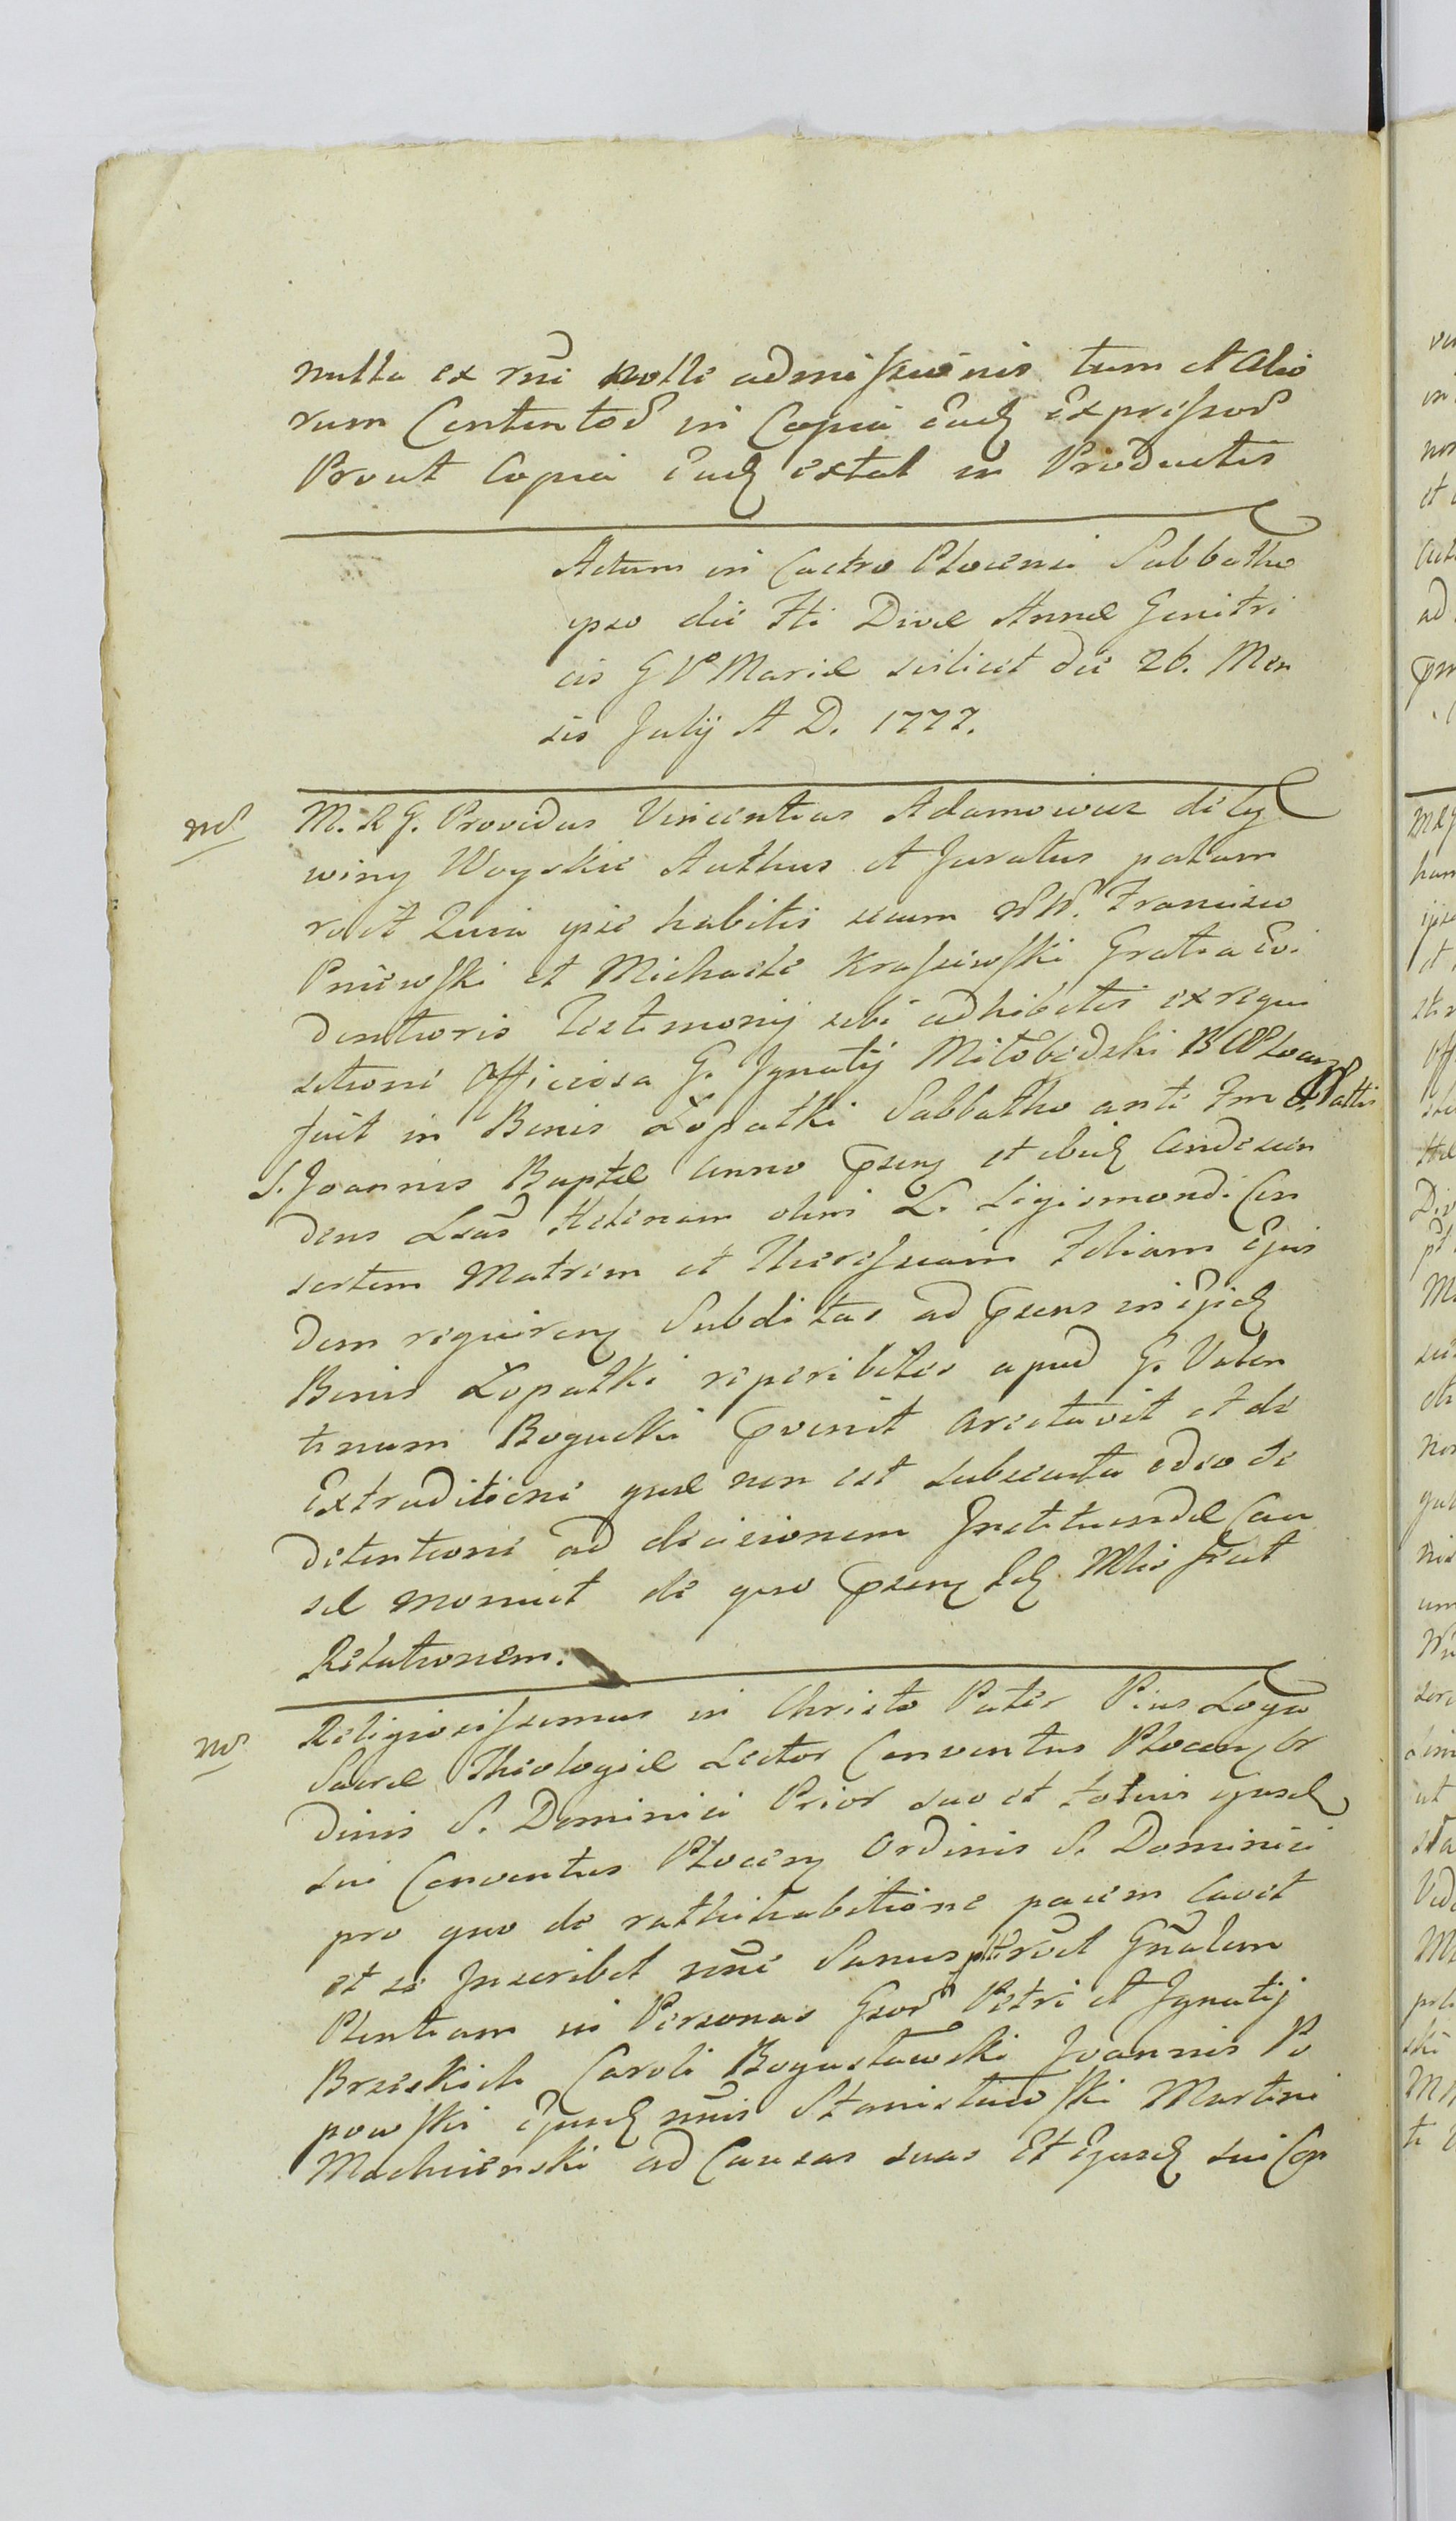 nulla ex rñi nolle admissionis tum et Alio
rum Contentoꝝ in Copia Eadꝫ Expressoꝝ
Prout Copia Eadꝫ extat in Productis
Actum in Castro Plocensi Sabbatho
ipso die Fti Divæ Annæ Genitri
cis G V Mariæ scilicet die 26. Men
sis Julij A D. 1777.
M. R G. Providus Vincentius Adamowicz de
winy Woyskie Authus et Juratus palam
rvit Quia ipse habitis secum NN. Francisco
Pniewski et Michaele Krassewski Gratia Evi
dentioris Testimonij sibi adhibitis ex requi
sitione Officiosa G. Ignatij Miłobędzki B
fuit in Bonis Łopatki Sabbatho ante Fm Nattis
S. Joannis Baptæ Anno Pseng et ibidꝫ Condescen
dens Lsas Helenam olim L. Sigismondi Con
sortem Matrem et Theressiam Filiam Ejus
dem requireng Subditas ad Psens in ijsdꝫ
Bonis Łopatki reperibiles apud G. Valen
tinum Bogucki Pvenit Arestavit et de
Extraditione quæ non est subsecuta adeo de
detentione ad decisionem Instituendæ Cau
sæ monuit de quo Pseng Sdꝫ Mlis fecit
Relationem.
Religiosissimus in Christo Pater Pius Loga
Sacræ Theologiæ Lector Conventus Plocenꝫ Or
dinis S. Dominici Prior suo et totius ejusdꝫ
sui Conventus Plocenꝫ Ordinis S. Dominici
pro quo de rathihabitione pacem Cavet
et se Inscribet nõne Sanus Gñalem
Plentiam in Personas Gsoꝝ Petri et Ignatij
Brzeskich Caroli Bogusławski Joannis Po
powski Ejusdꝫ nñis Stanisławski Martini
Mochciński ad Causas suas Et Ejusdꝫ sui Con